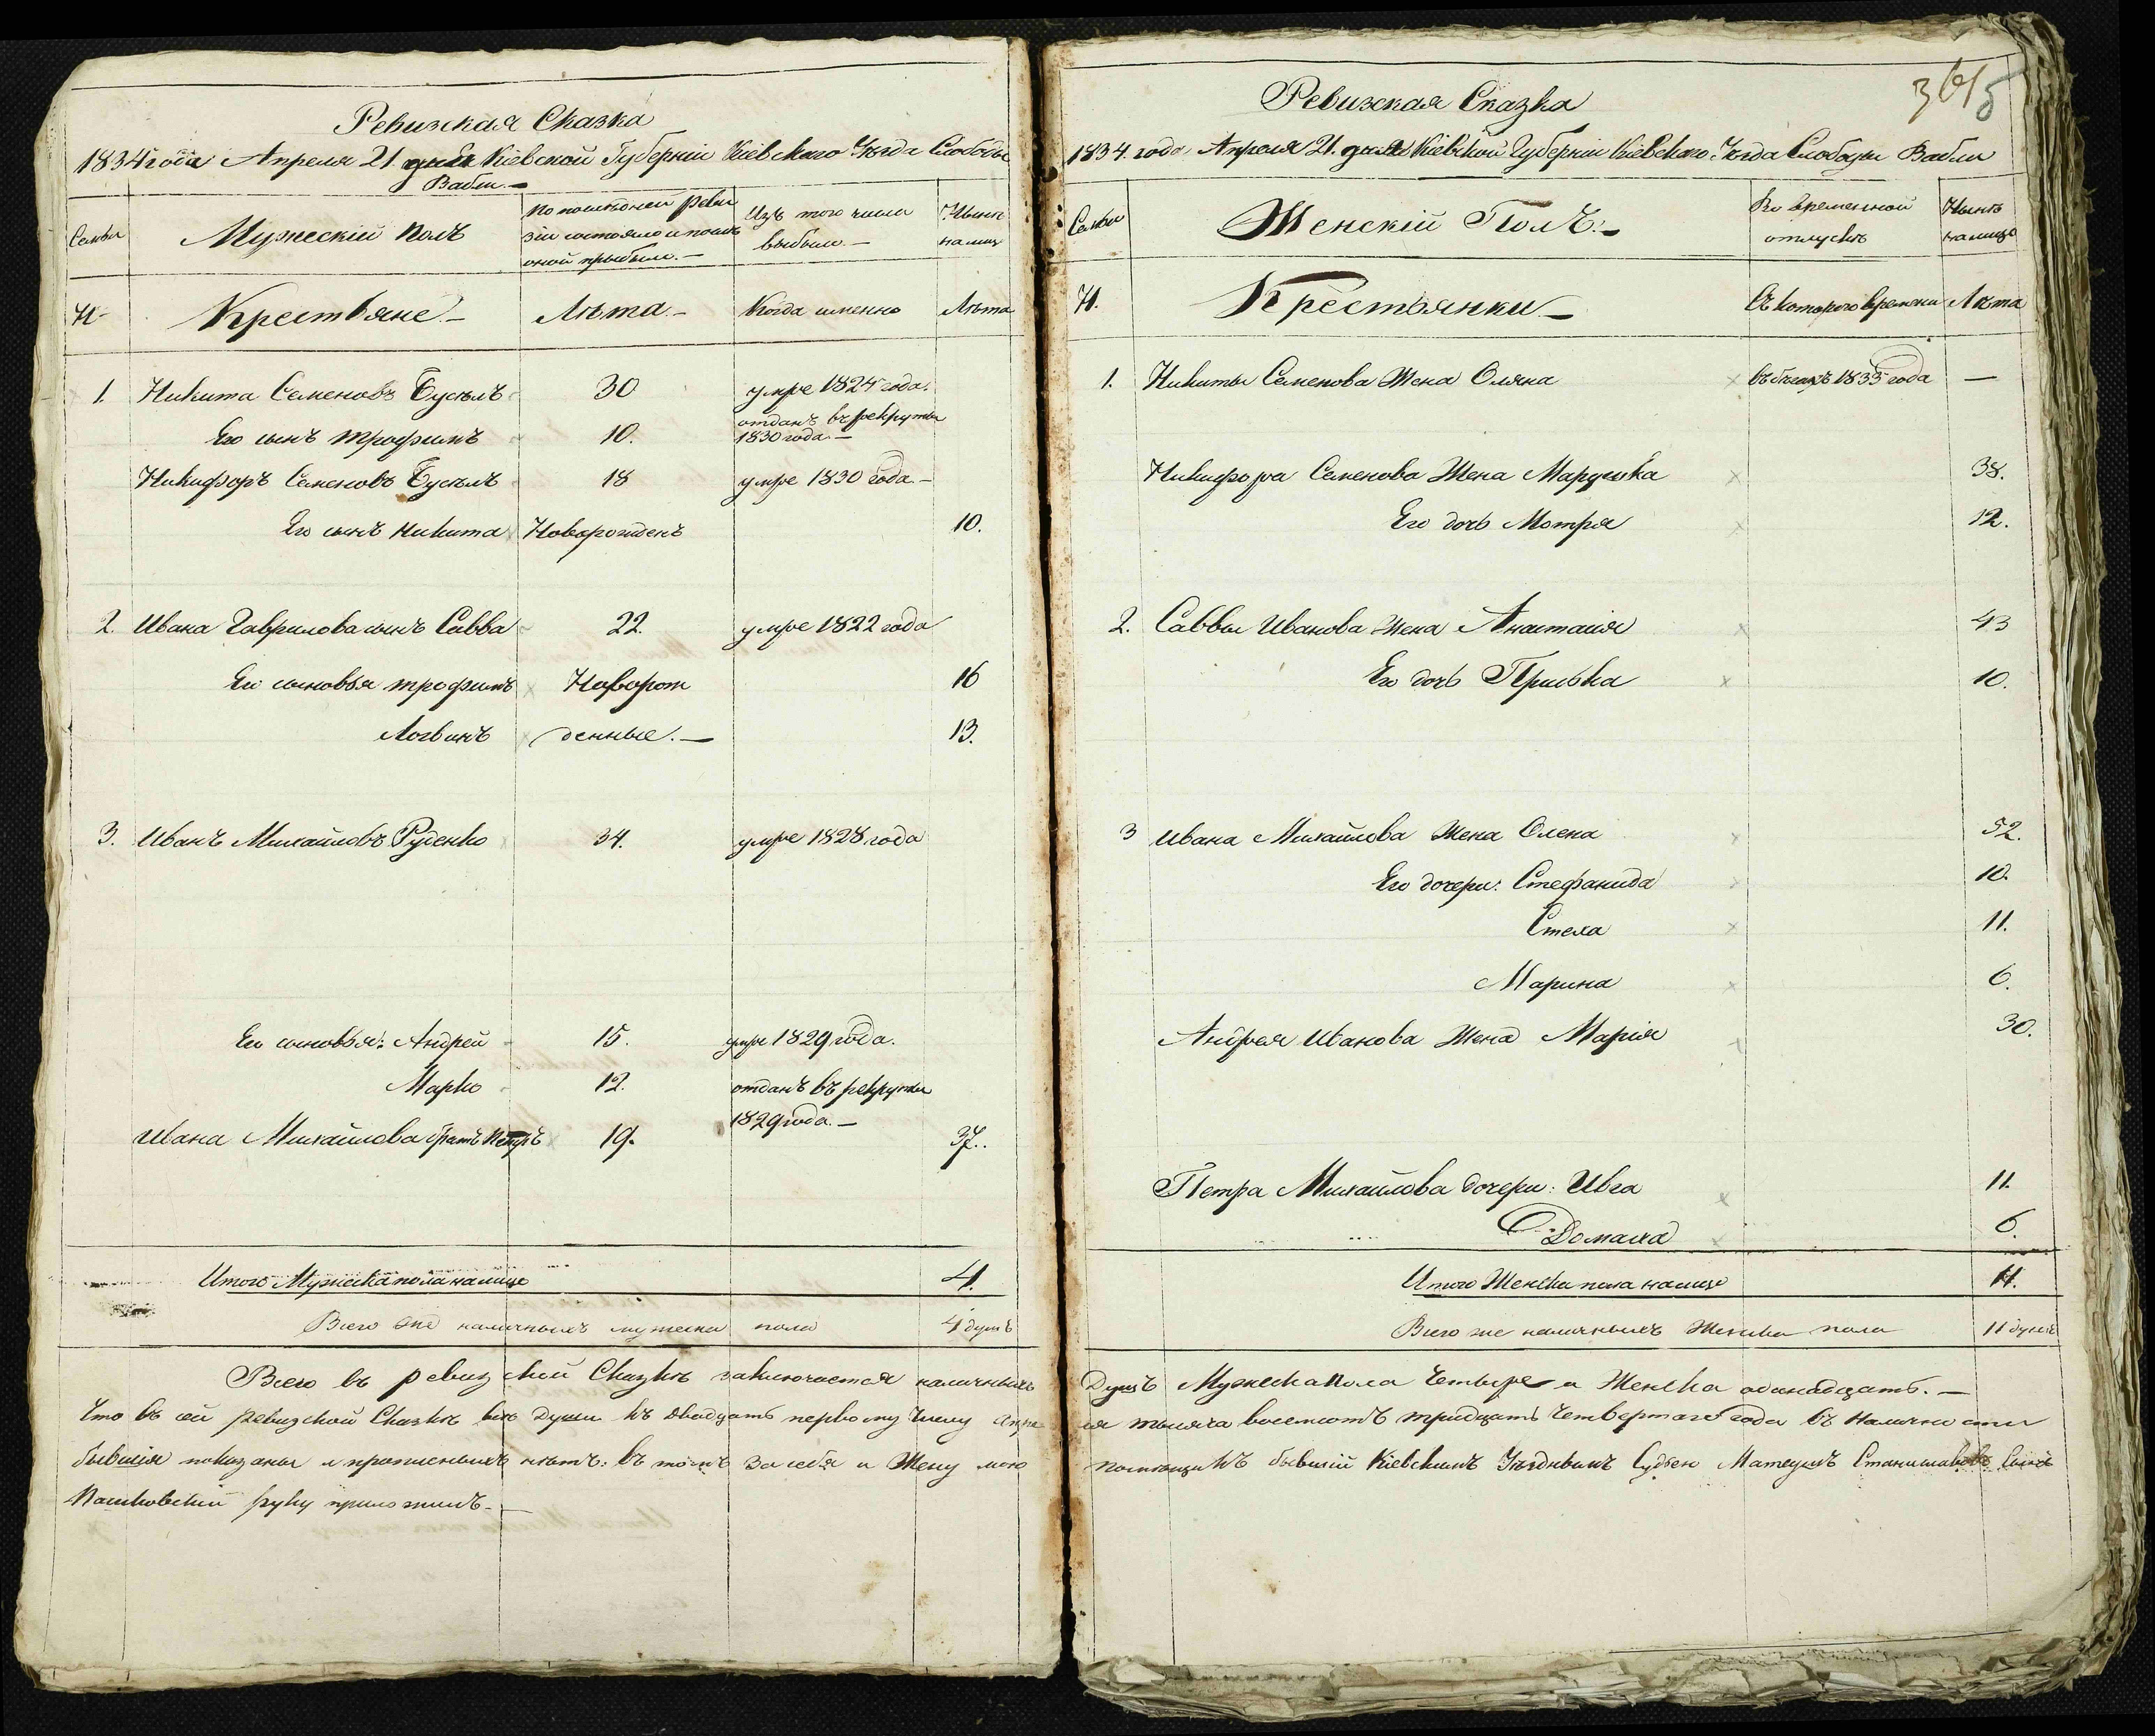 Ревизская Сказка
1834 года Апреля 21 дня Кіевской Губерніи Кіевского Уѣзда Слободы
Вабли.
Семьи
Мужескій полъ
По последней реви
зіи состояло и послѣ
оной прыбыли.
Изъ того числа
выбыли.
Нынѣ
налицо
Н.
Крестьяне
Лѣта
Когда именно
Лѣта
1. Никита Семеновъ Бусылъ 30 умре 1824 года.
Его сынъ Трофимъ 10. отданъ въ рекруты
1830 года
Никифоръ Семеновъ Бусылъ 18 умре 1830 года
Его сынъ Никита Новорожденъ 10.
2. Ивана Гаврилова сынъ Савва 22. умре 1822 года
Его сыновья трофимъ Новорож 16
Логвинъ денные. 13.
3. Иванъ Михайловъ Руденко 34. умре 1828 года
Его сыновья: Андрей 15. умре 1829 года.
Марко 12. отданъ въ рекруты
1829 года.
Ивана Михайлова братъ Петръ 19. 37.
Итого Мужеска пола налицо 4.
Всего же наличныхъ мужеска пола 4 душъ
Всего въ ревизской Сказкѣ заключается наличныхъ
Что въ сей ревизской Сказкѣ всѣ души къ двадцать первому числу Апре
бывшія показаны и прописныхъ нѣтъ: въ томъ за себя и Жену мою
руку приложилъ.
3
Ревизская Сказка
1834. года Апреля 21. дня Кіевской Губерніи Кіевского Уѣзда Слободы Вабли
Семьи
Женскій Полъ.
Во временной
отлучкѣ
Нынѣ
налицо
Н.
Крестьянки
Съ которого времени
Лѣта
1. Никиты Семенова Жена Оляна въ бѣгахъ 1833 года —
Никифора Семенова Жена Марушка 38.
Его дочь Мотря 12.
2. Саввы Иванова Жена Анастасія 43
Его дочь Приська 10.
3 Ивана Михайлова Жена Олена 52.
Его дочери: Стефанида 10.
Стеха 11.
Марина 6.
Андрея Иванова Жена Марія 30.
Петра Михайлова дочери: Ивга 11.
Домаха 6.
Итого Женска пола налицо 11.
Всего же наличныхъ Женска пола 11 душъ
Душъ Мужеска Пола Четыре и Женска одинадцать.
ля тысяча восемсотъ тридцать Четвертаго года въ Наличности
помѣщикъ бывшій Кіевскимъ Уѣзднымъ Судьею Матеушъ Станиславовъ Сынъ